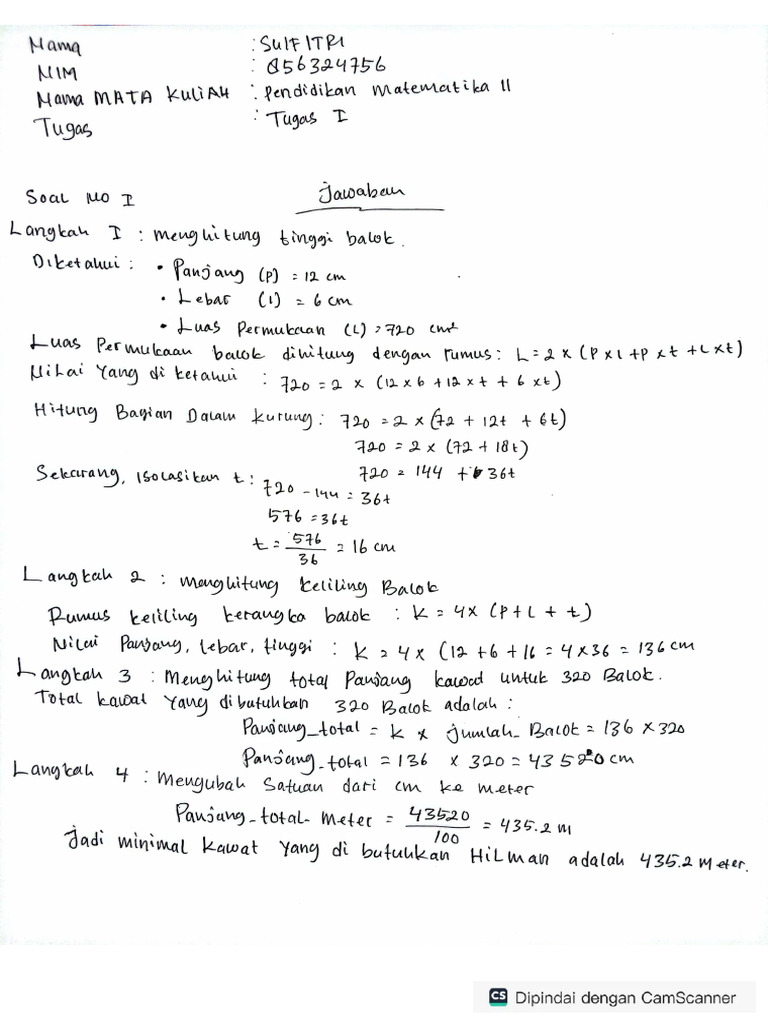 Nama : SULFITRI
NIM : 856324756
Nama MATA KULIAH : Pendidikan Matematika II
Tugas : Tugas I
Soal No I Jawaban
Langkah I : menghitung tinggi balok.
Diketahui : • Panjang (P) = 12 cm
• Lebar (l) = 6 cm
• Luas Permukaan (L) = 720 cm²
Luas Permukaan balok dihitung dengan rumus : L = 2 × (P × L + P × t + L × t)
Nilai Yang di ketahui : 720 = 2 × (12 × 6 + 12 × t + 6 × t)
Hitung Bagian Dalam kurung : 720 = 2 × (72 + 12t + 6t)
720 = 2 × (72 + 18t)
720 = 144 + 36t
Sekarang, Isolasikan t : 720 - 144 = 36t
576 = 36t
t = 576/36 = 16 cm
Langkah 2 : menghitung keliling Balok
Rumus keliling kerangka balok : K = 4 × (P + L + t)
Nilai Panjang, lebar, tinggi : K = 4 × (12 + 6 + 16 = 4 × 36 = 136 cm
Langkah 3 : Menghitung total Panjang kawat untuk 320 Balok.
Total kawat yang dibutuhkan 320 Balok adalah :
Panjang_total = K × jumlah_Balok = 136 × 320
Panjang_total = 136 × 320 = 43520 cm
Langkah 4 : Mengubah Satuan dari cm ke meter
Panjang_total_Meter = 43520/100 = 435.2 m
Jadi minimal kawat yang di butuhkan HILMAN adalah 435.2 Meter.
CS Dipindai dengan CamScanner